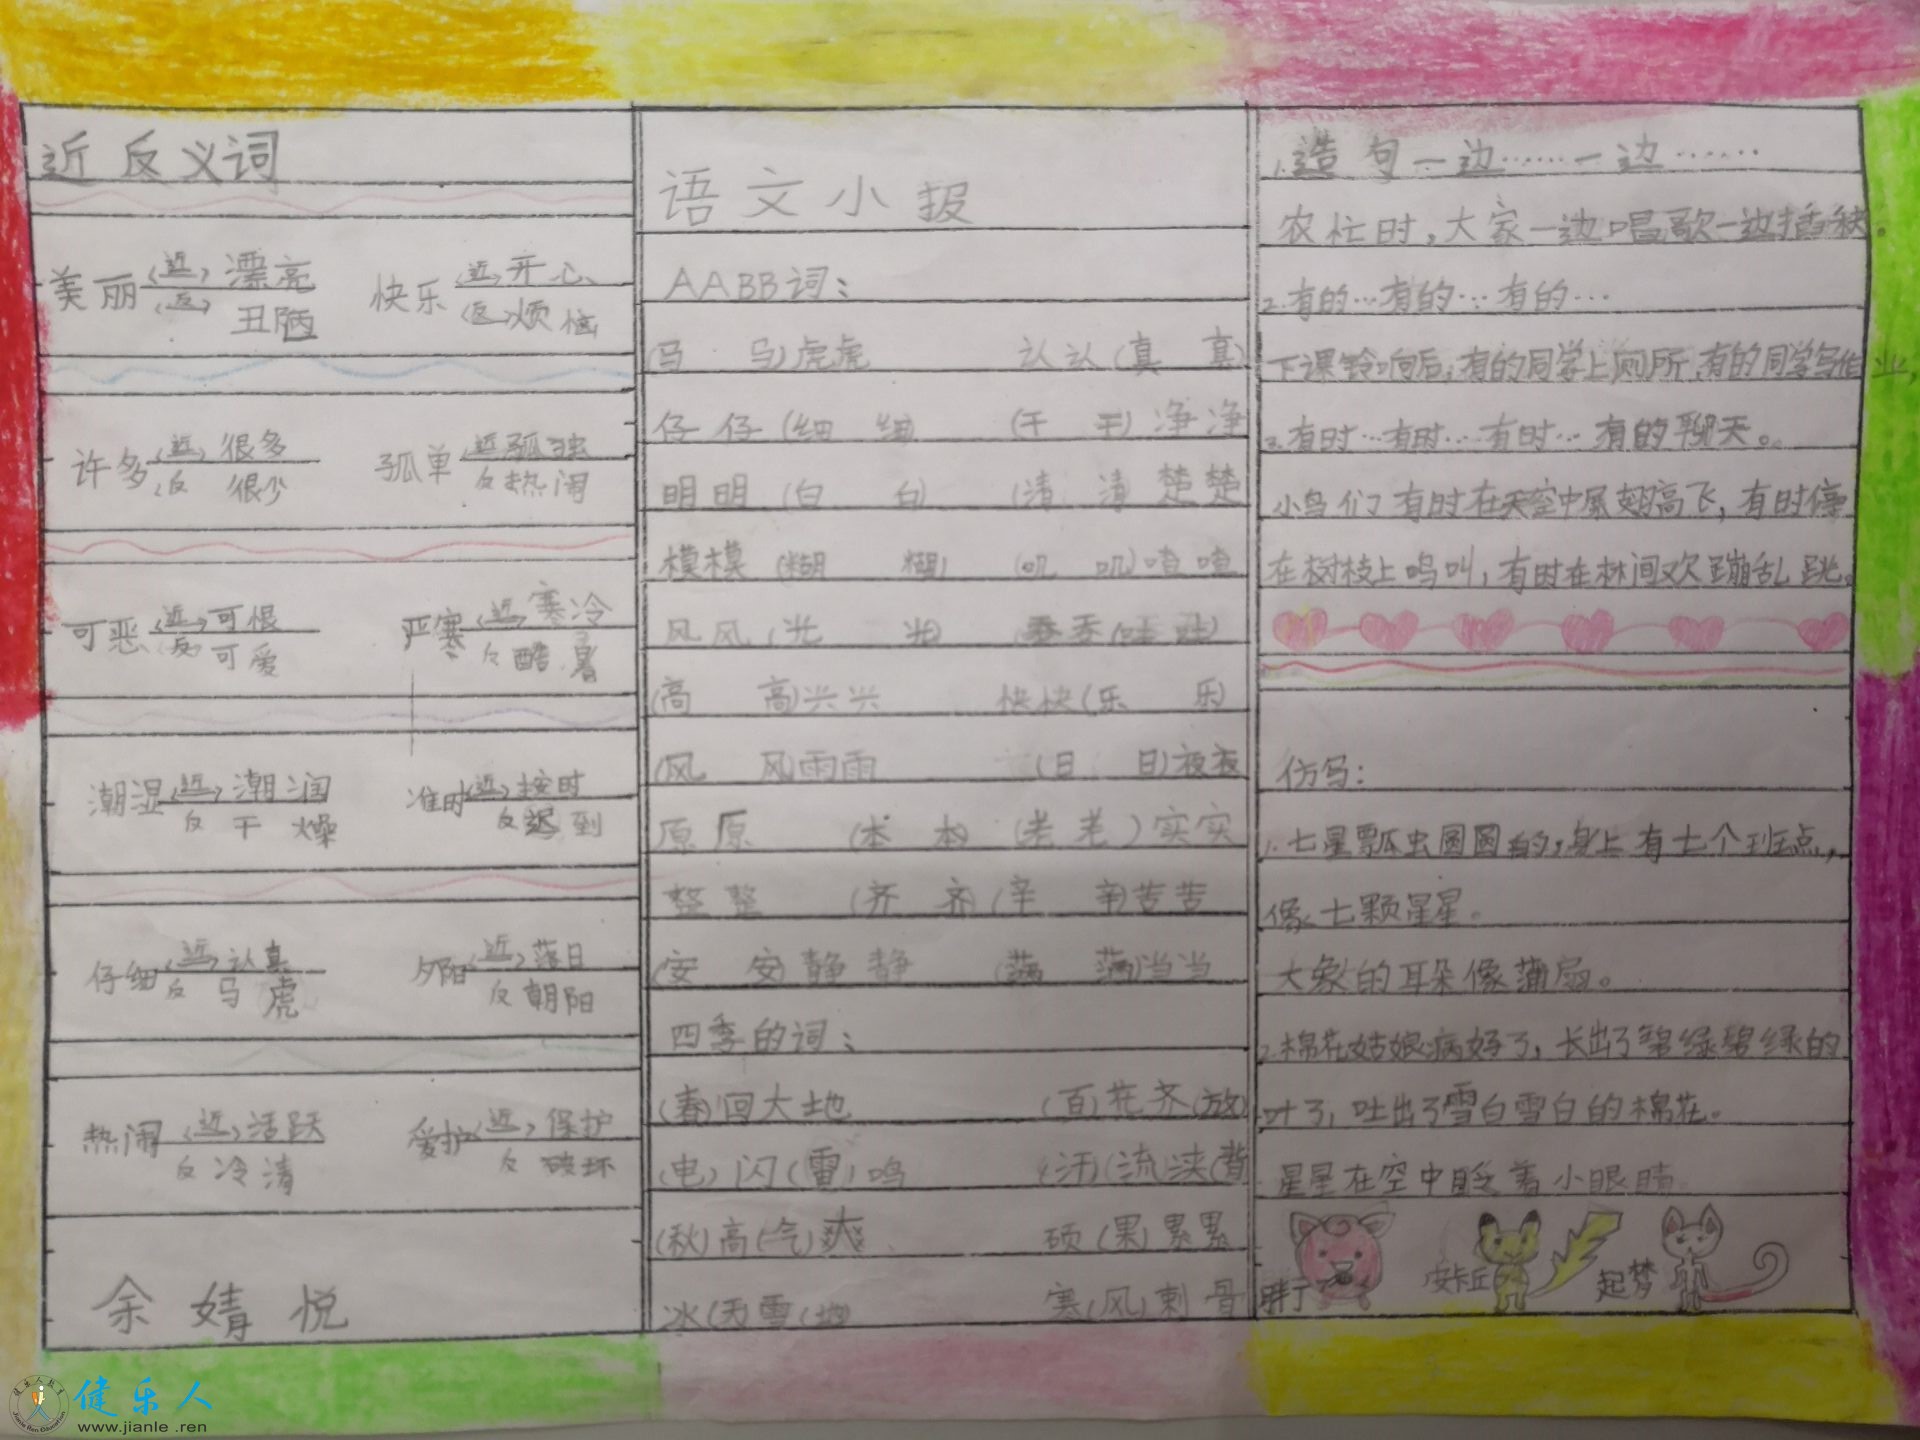 近反义词
美丽 (近) 漂亮 快乐 (近) 开心
(反) 丑陋 (反) 烦恼
许多 (近) 很多 孤单 近 孤独
(反 很少 反 热闹
可恶 (近) 可恨 严寒 (近) 寒冷
反 可爱 反 酷暑
潮湿 (近) 潮润 准时 (近) 按时
反 干燥 反 迟到
仔细 (近) 认真 夕阳 (近) 落日
反 马虎 反 朝阳
热闹 (近) 活跃 爱护 (近) 保护
反 冷清 反 破坏
余婧悦
语文小报
AABB词:
(马 马)虎虎 认认(真 真)
仔仔(细 细) (干 干)净净
明明(白 白) (清 清)楚楚
模模(糊 糊) (叽 叽)喳喳
风风(光 光)
(高 高)兴兴 快快(乐 乐)
(风 风)雨雨 (日 日)夜夜
原原(本 本) (老 老)实实
整整(齐 齐) (辛 辛)苦苦
(安 安)静静 (满 满)当当
四季的词:
(春)回大地 (百)花齐(放)
(电)闪(雷)鸣 (汗)(流)浃(背
(秋)高(气)爽 硕(果)累累
冰(天)雪(地) 寒(风)刺骨
1.造句一边……一边……
农忙时,大家一边唱歌一边插秧。
2.有的…有的…有的…
下课铃响后,有的同学上厕所,有的同学写作业,
3.有时…有时…有时… 有的聊天。
小鸟们有时在天空中展翅高飞,有时停
在树枝上鸣叫,有时在林间欢蹦乱跳。
仿写:
1.七星瓢虫圆圆的,身上有七个斑点,
像七颗星星。
大象的耳朵像蒲扇。
2.棉花姑娘病好了,长出了碧绿碧绿的
叶了,吐出了雪白雪白的棉花。
星星在空中眨着小眼睛
胖丁 皮卡丘 超梦
健乐人
www.jianle.ren